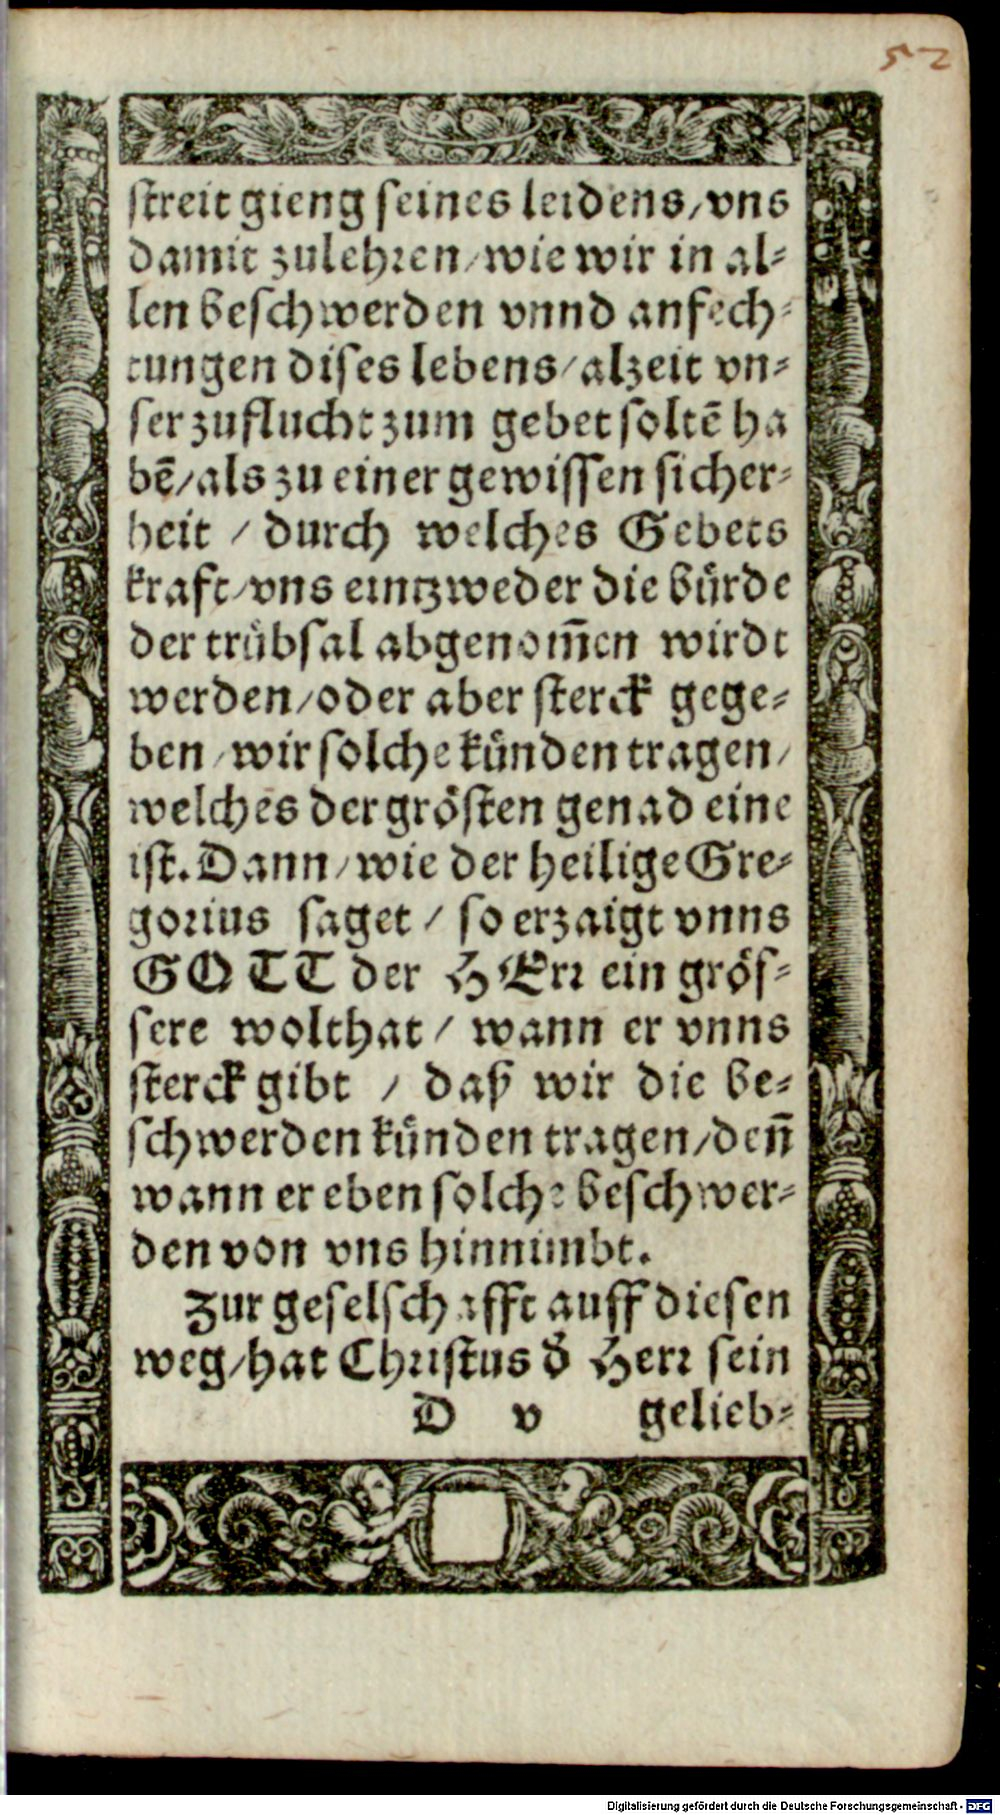 52
streit gieng seines leidens/vns
damit zulehren/wie wir in al-
len beschwerden vnnd anfech-
tungen dises lebens/alzeit vn-
ser zuflucht zum gebet soltē ha
bē/als zu einer gewissen sicher-
heit / durch welches Gebets
kraft/vns eintzweder die bürde
der trübsal abgenom̄en wirdt
werden/oder aber sterck gege-
ben/wir solche künden tragen/
welches der grösten genad eine
ist. Dann/wie der heilige Gre-
gorius saget / so erzaigt vnns
GOTT der HErr ein grös-
sere wolthat / wann er vnns
sterck gibt / daß wir die be-
schwerden künden tragen/den̄
wann er eben solche beschwer-
den von vns hinnimbt.
Zur geselschafft auff diesen
weg/hat Christus d̄ Herr sein
D v gelieb-
Digitalisierung gefördert durch die Deutsche Forschungsgemeinschaft - DFG